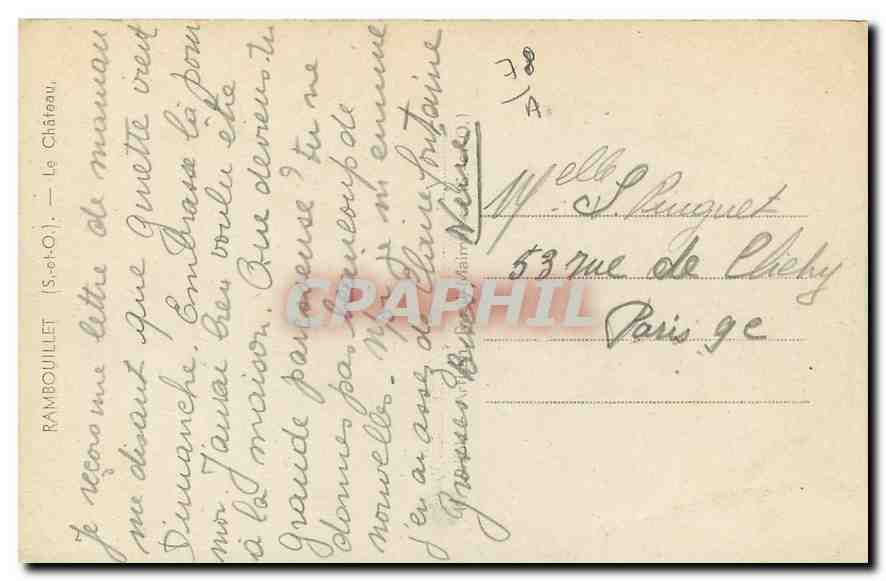 RAMBOUILLET (S.-et-O.). — Le Château.
Je reçois une lettre de maman
me disant que Ginette vient
Dimanche. Embrasse la pour
moi. J'aurai bien voulu être
à la maison. Que deviens-tu
Grande paresseuse? tu ne
donnes pas beaucoup de
nouvelles. Moi je m'ennuie
j'en ai assez de Claire fontaine
Grosses Bises
Melle S. Puuguet
53 rue de Clichy
Paris 9e
CPAPHIL